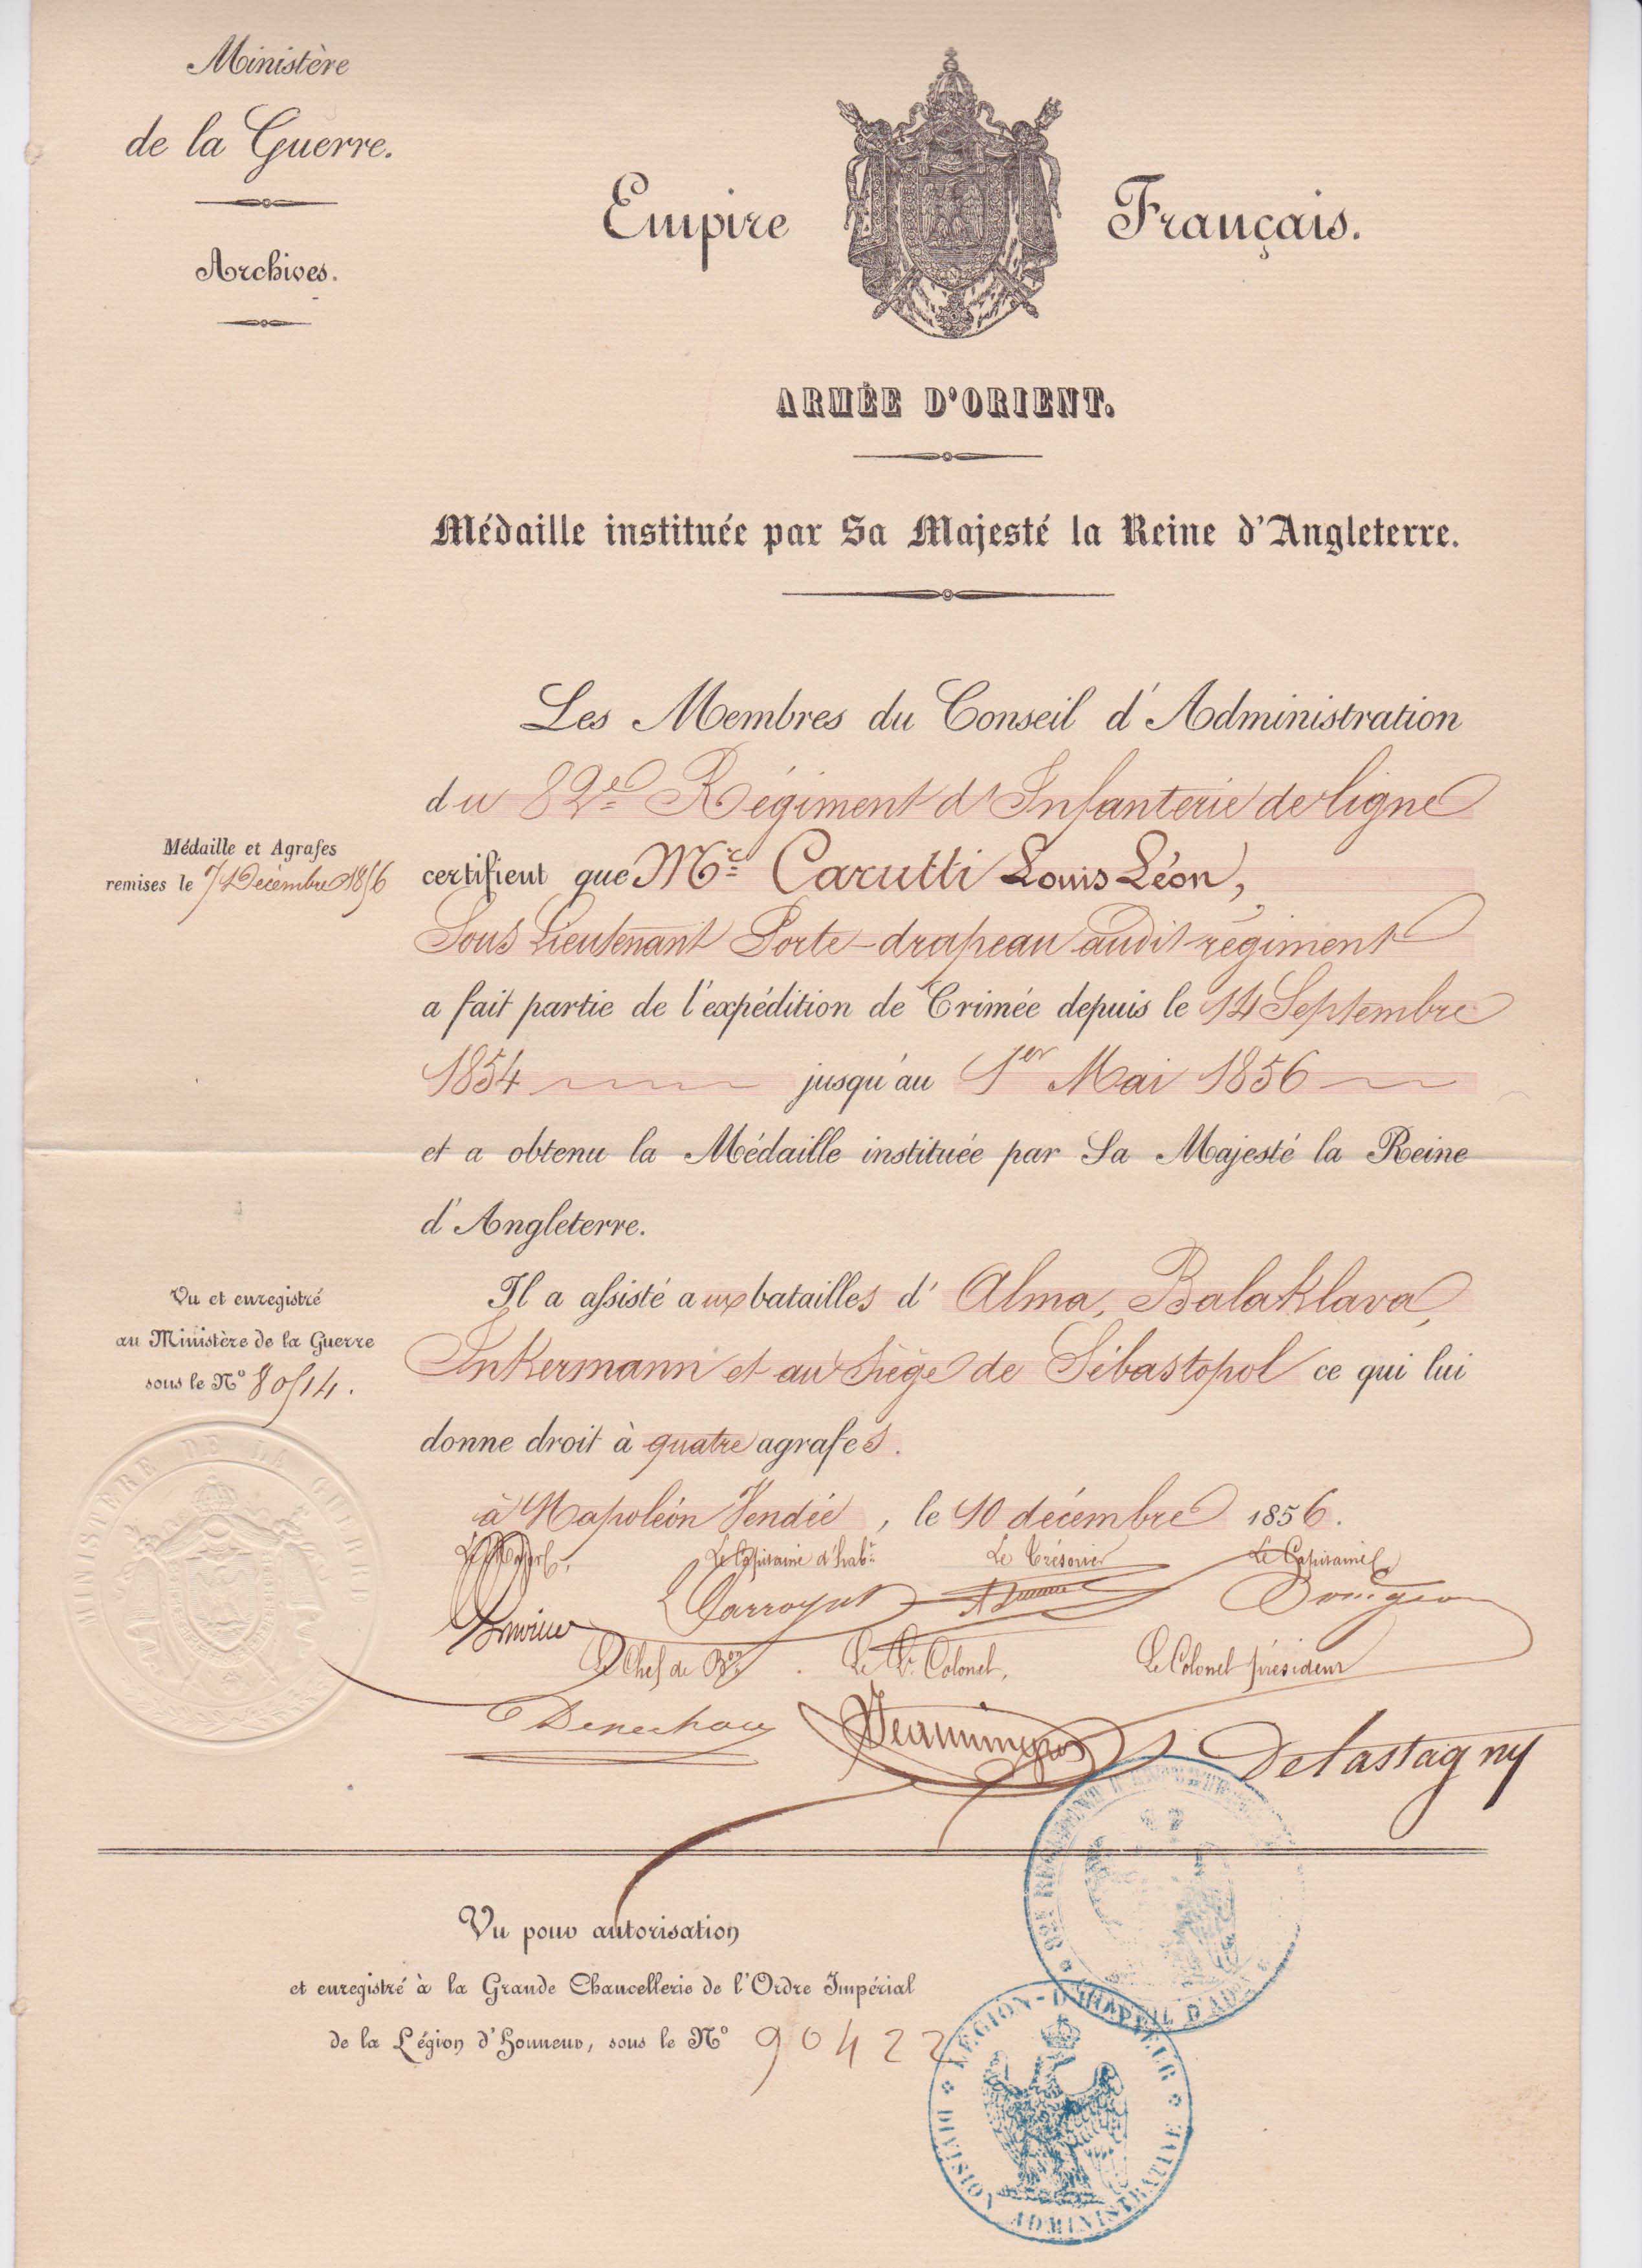 Ministère
de la Guerre.
Archives.
Empire Français.
ARMÉE D'ORIENT.
Médaille instituée par Sa Majesté la Reine d'Angleterre.
Les Membres du Conseil d'Administration
du 82e Régiment d'Infanterie de ligne
Médaille et Agrafes
remises le Décembre 1856
certifient que Mr Carutti Louis Léon,
Sous Lieutenant Porte-drapeau audit régiment
a fait partie de l'expédition de Crimée depuis le 14 Septembre
1854 jusqu'au 1er Mai 1856
et a obtenu la Médaille instituée par Sa Majesté la Reine
d'Angleterre.
Il a assisté aux batailles d' Alma, Balaklava,
Inkermann et au Siège de Sébastopol ce qui lui
donne droit à quatre agrafes.
Vu et enregistré
au Ministère de la Guerre
sous le No 80514.
MINISTÈRE DE LA GUERRE
à Napoléon Vendée, le 10 décembre 1856.
Le Major, Le Capitaine d'habt Le Trésorier Le Capitaine
Le Chef de Bon Le Lt Colonel, Le Colonel président
Delastagny
Vu pour autorisation
et enregistré à la Grande Chancellerie de l'Ordre Impérial
de la Légion d'Honneur, sous le No 90422
LÉGION-D'HONNEUR
DIVISION ADMINISTRATIVE